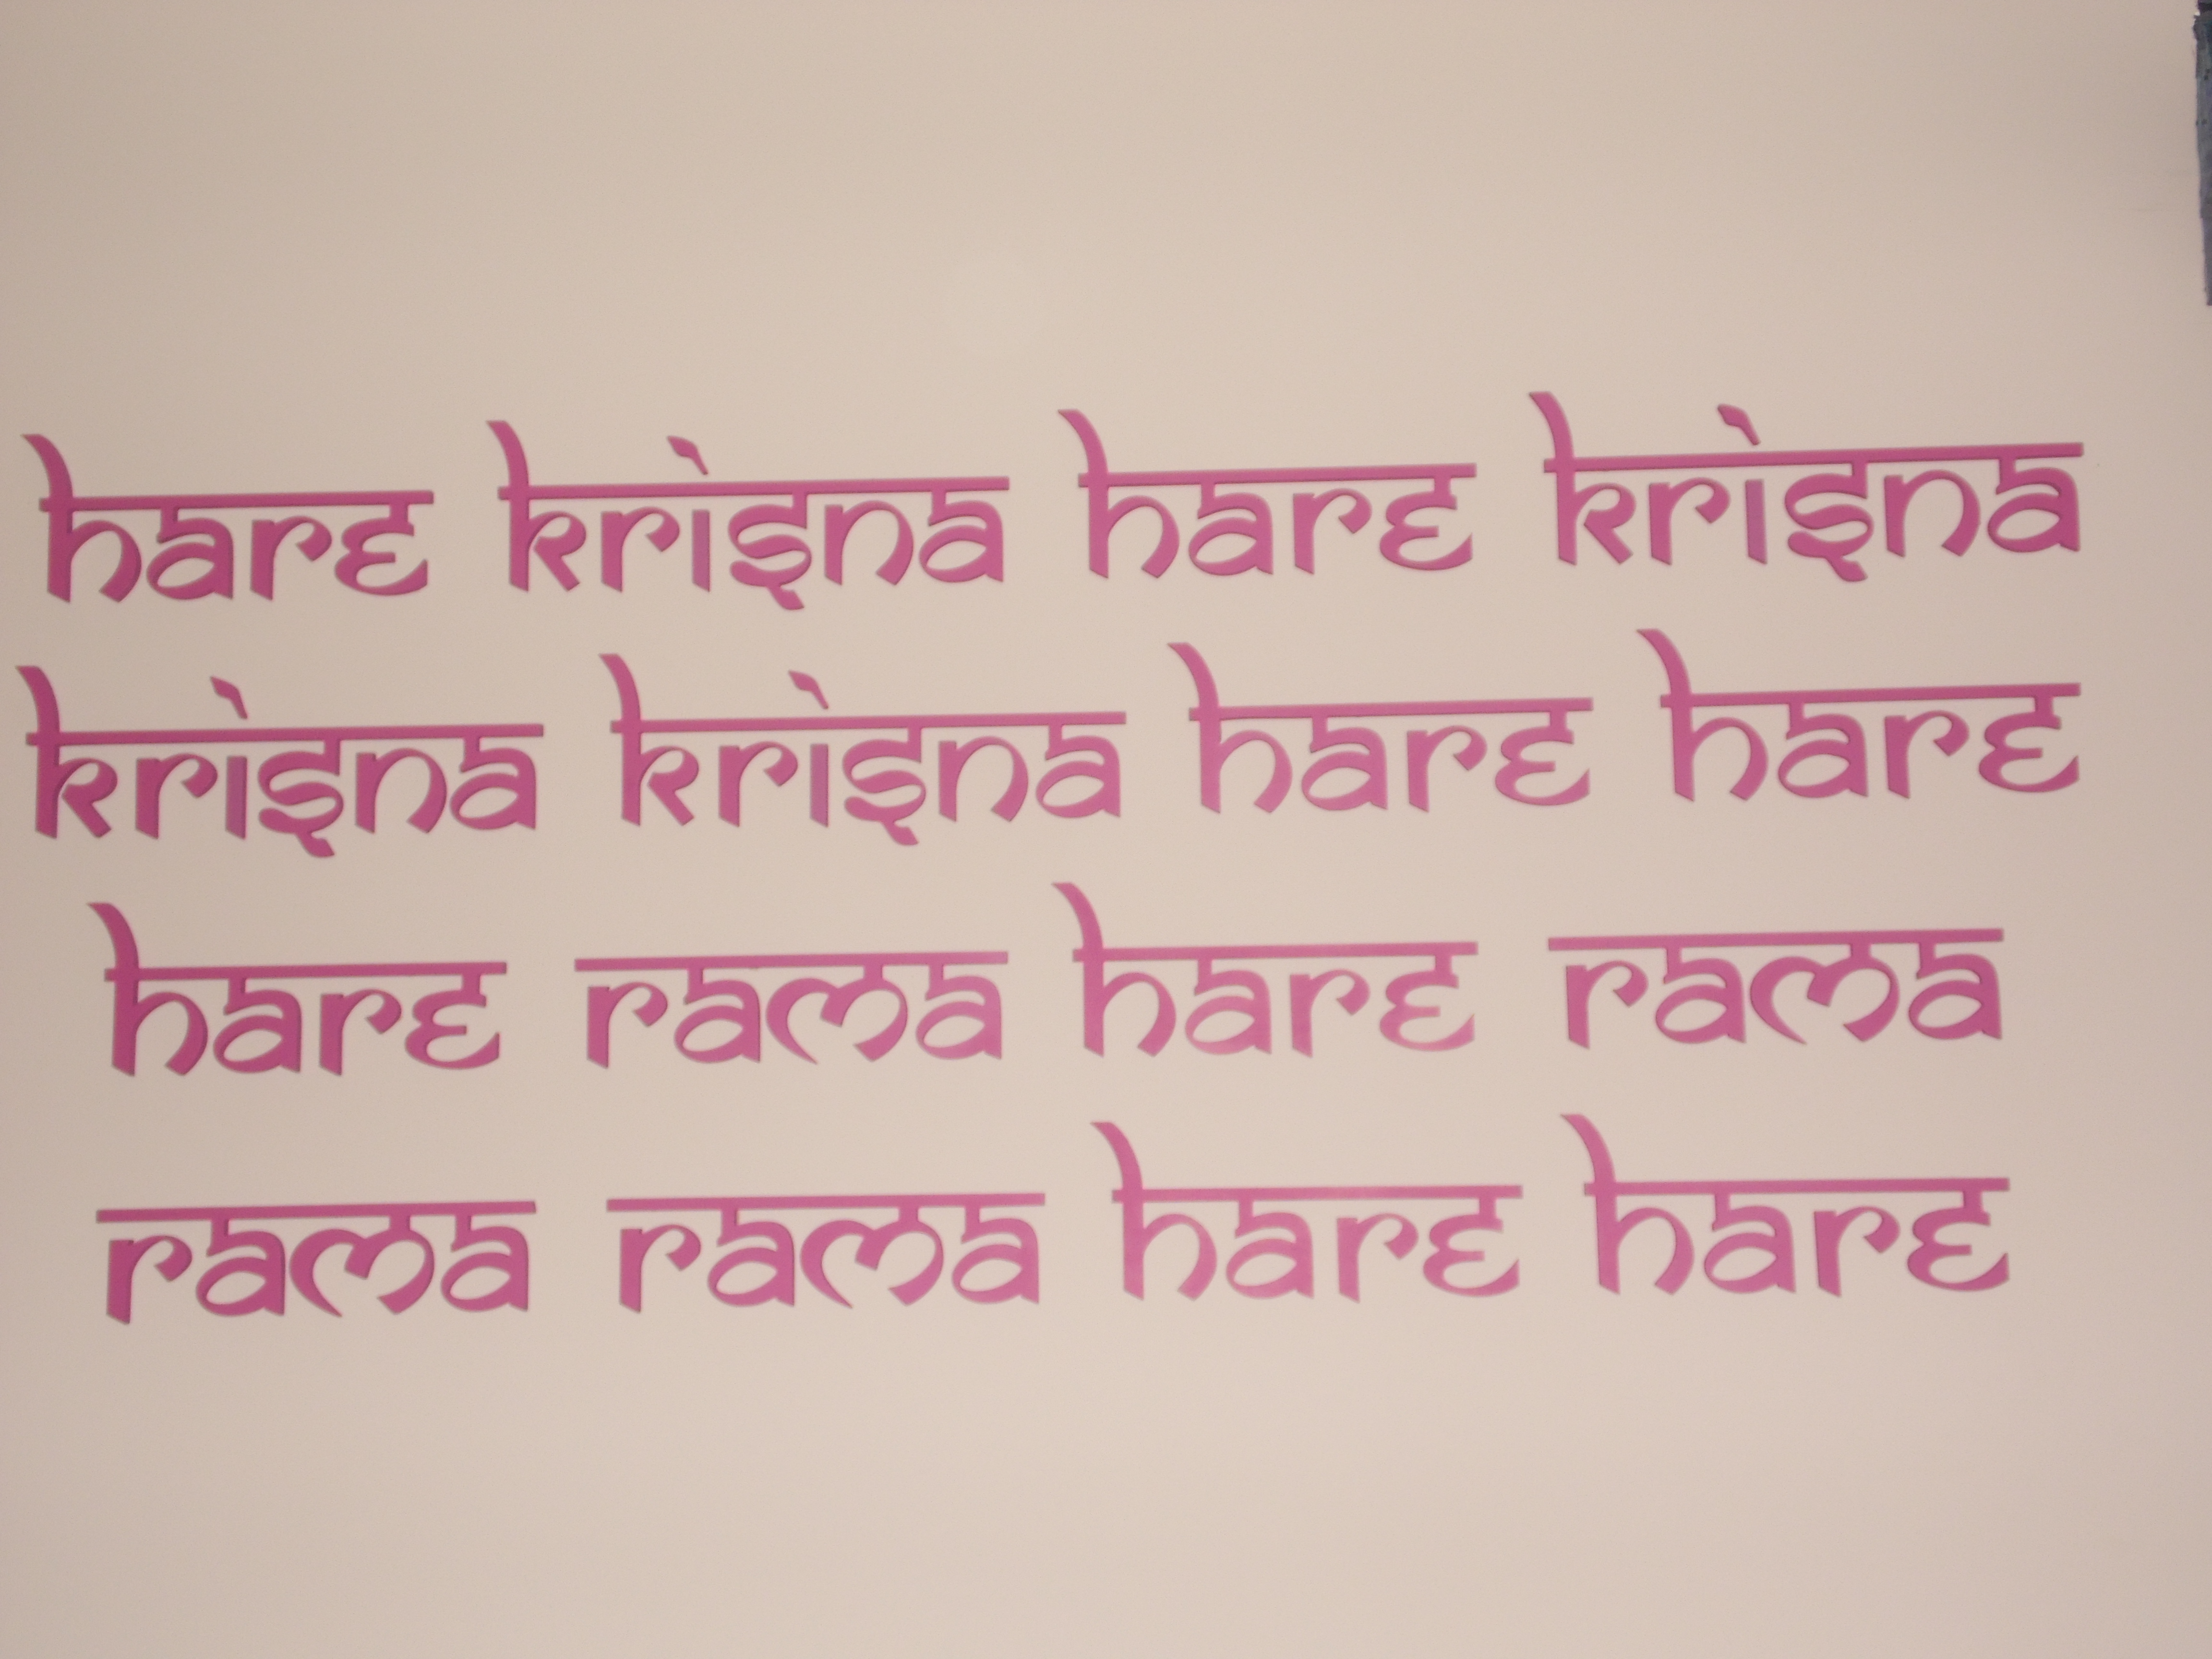 hare krisna hare krisna
krisna krisna hare hare
hare rama hare rama
rama rama hare hare